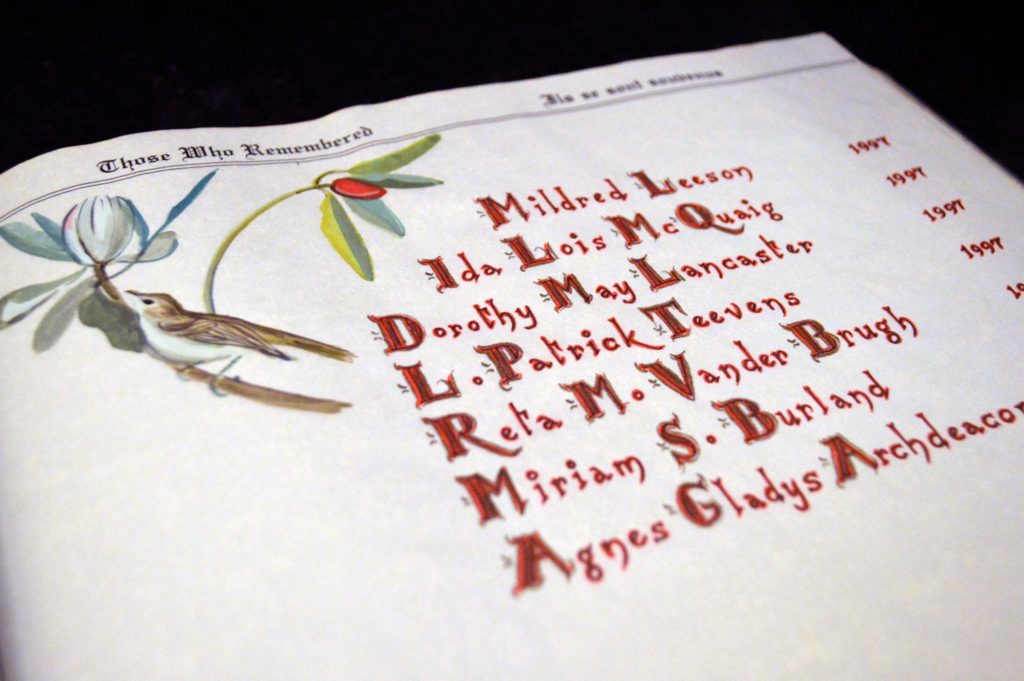 Those Who Remembered
Ils se sont souvenus
Mildred Leeson 1997
Ida Lois McQuaig 1997
Dorothy May Lancaster 1997
L. Patrick Teevens 1997
Reta M. Vander Brugh
Miriam S. Burland
Agnes Gladys Archdeacon